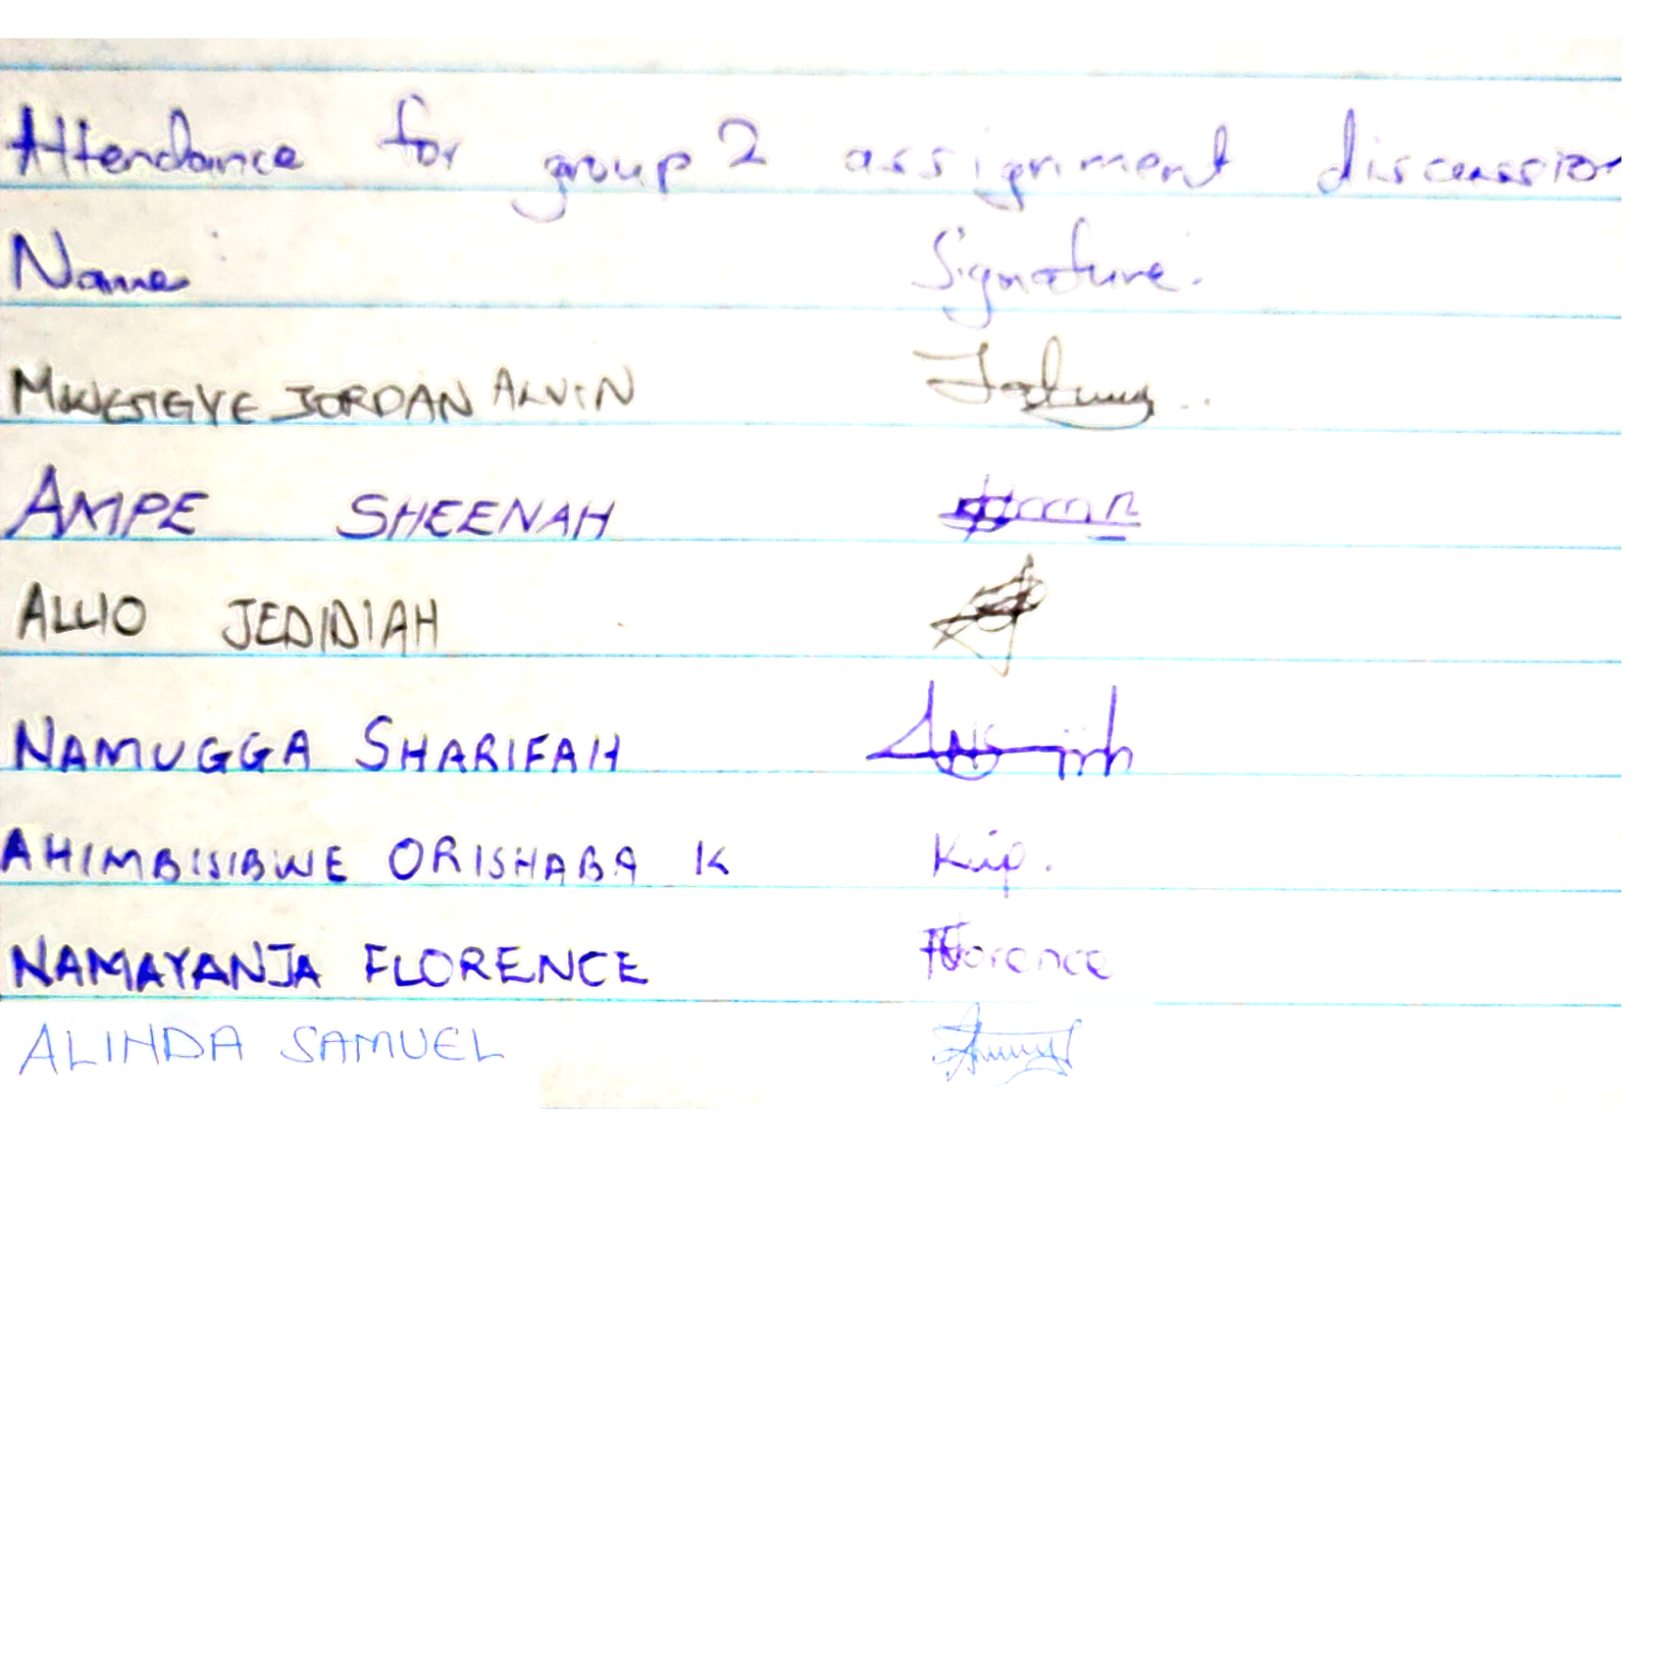 Attendance for group 2 assignment discussion
Name Signature.
MWESIGYE JORDAN ALVIN
AMPE SHEENAH
ALLIO JEDIDIAH
NAMUGGA SHARIFAH
AHIMBISIBWE ORISHABA K Kip.
NAMAYANJA FLORENCE Florence
ALINDA SAMUEL